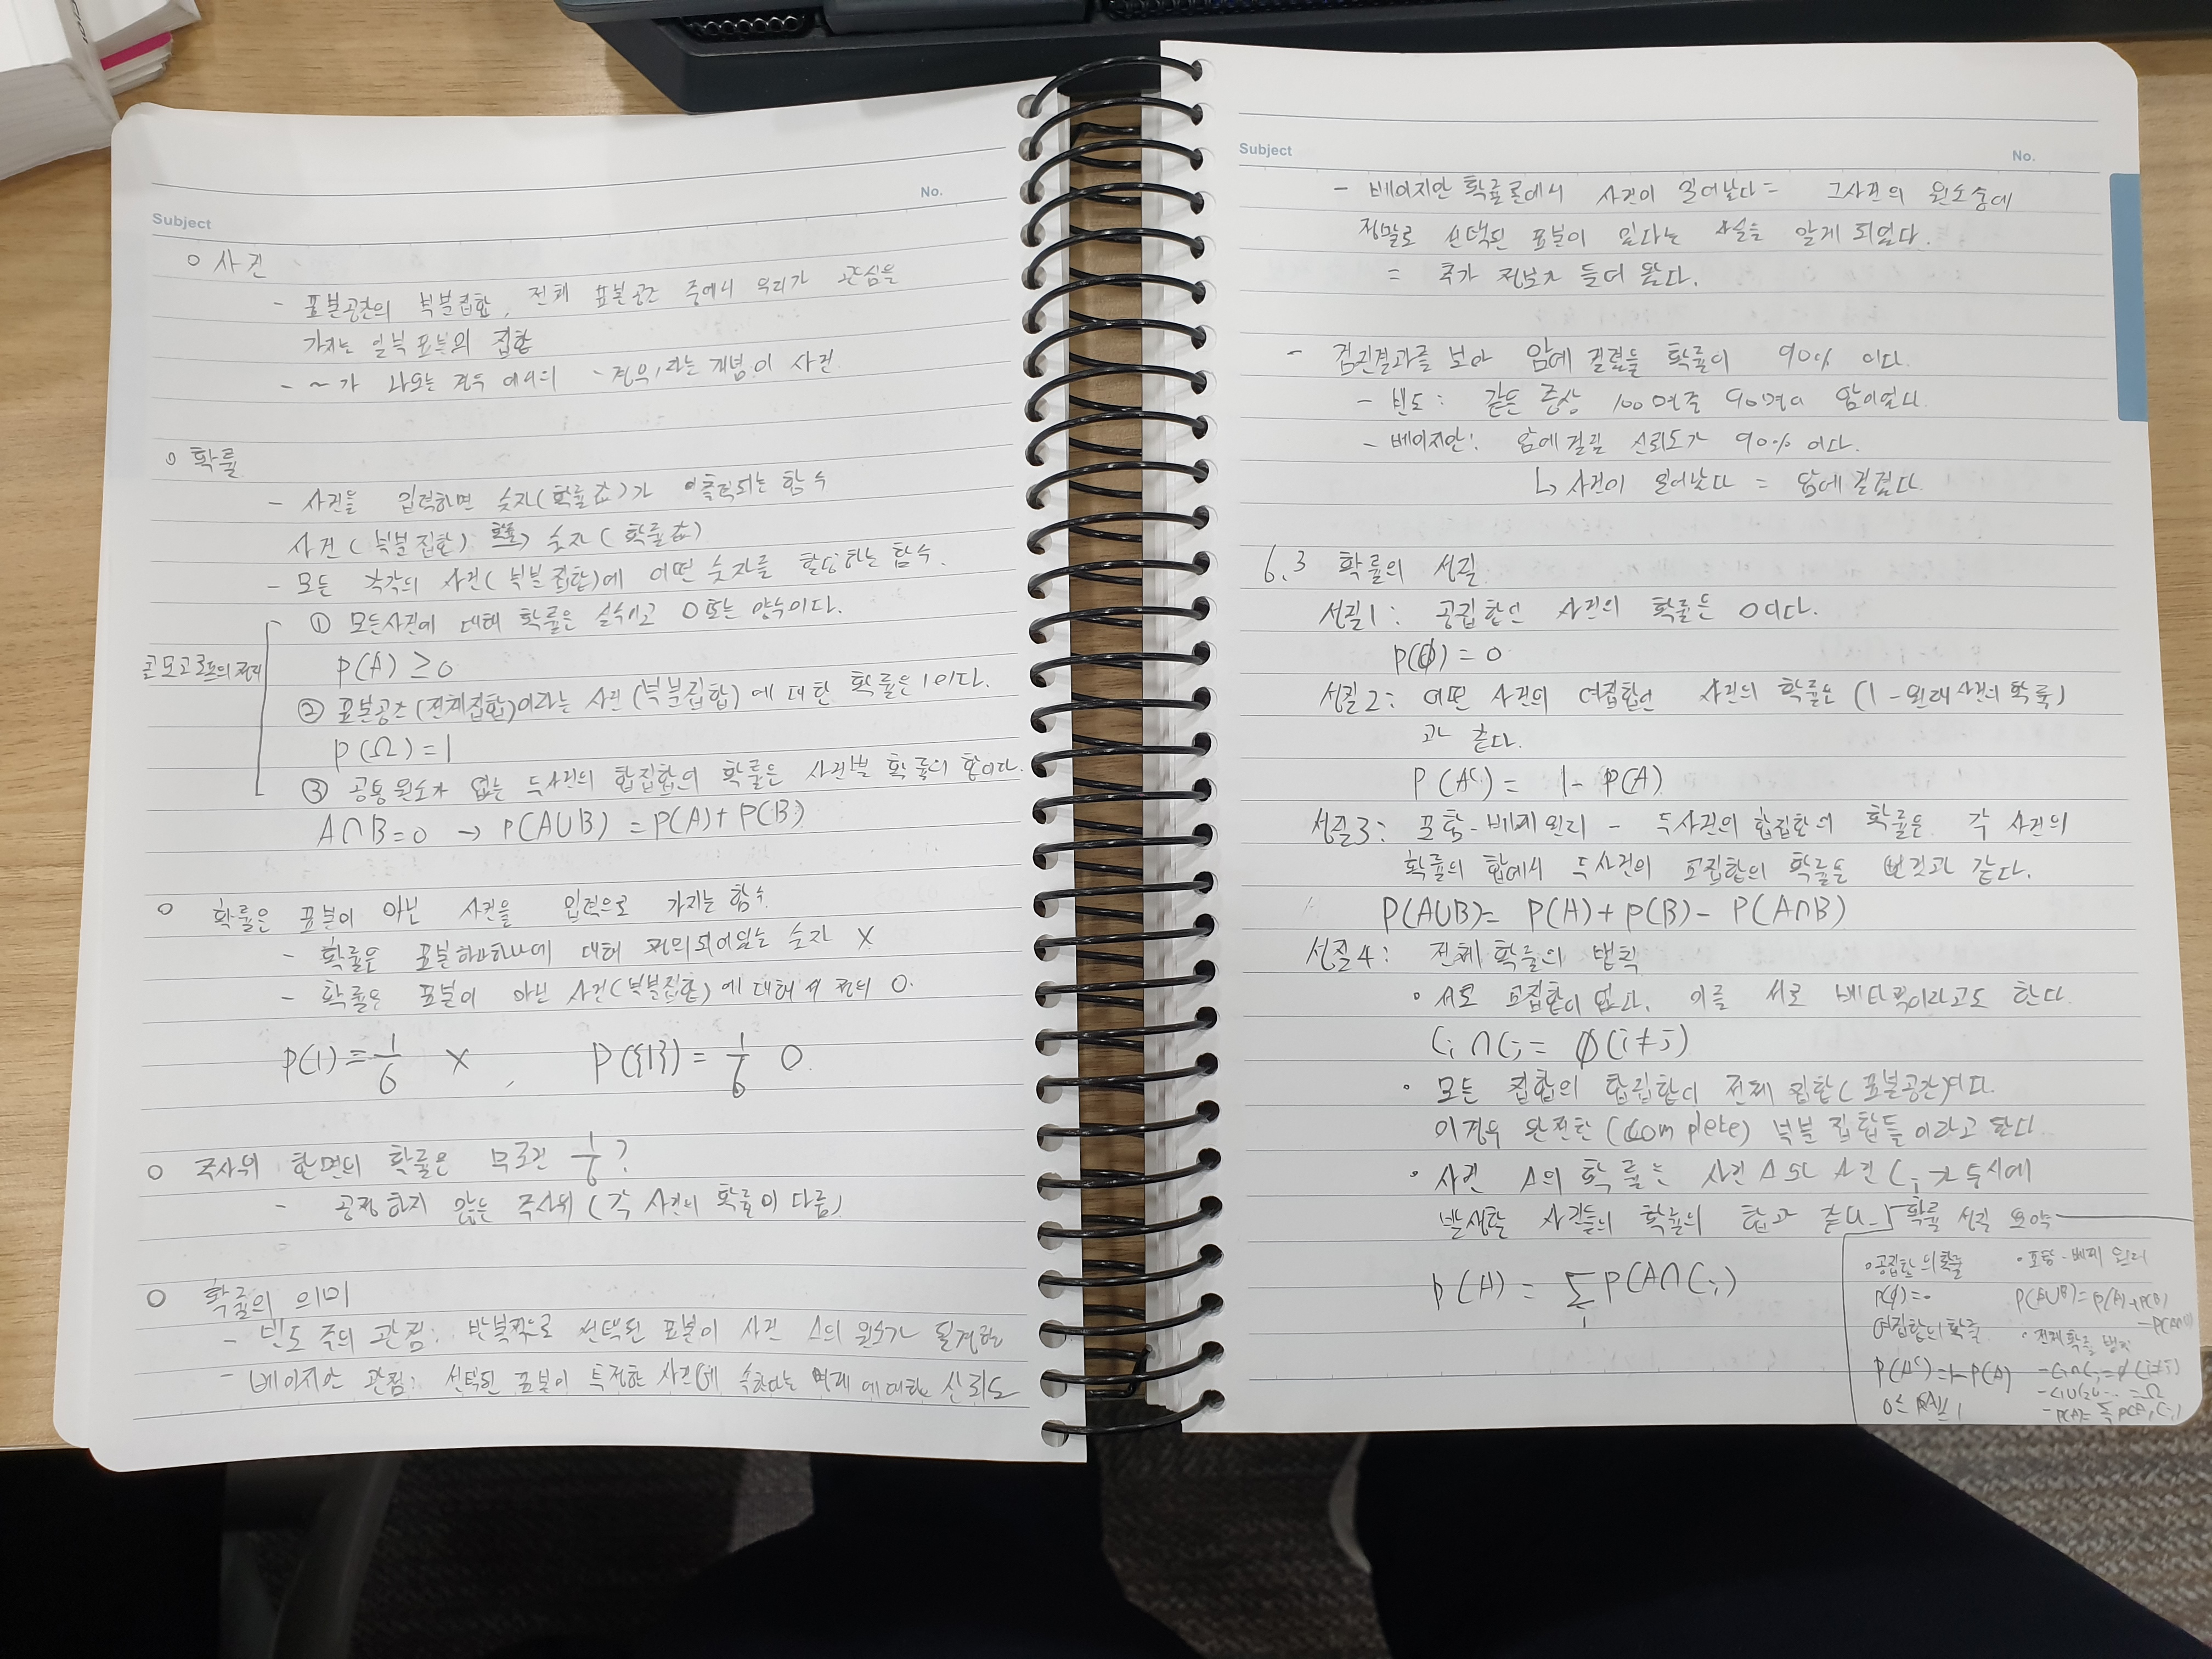 Subject
No.
○ 사건
- 표본공간의 부분집합, 전체 표본공간 중에서 우리가 관심을
가지는 일부 표본의 집합
- ~가 나오는 경우 에서의 '경우'라는 개념이 사건
○ 확률
- 사건을 입력하면 숫자(확률값)가 출력되는 함수
사건(부분집합) 확률→ 숫자(확률값)
- 모든 각각의 사건(부분집합)에 어떤 숫자를 할당하는 함수.
① 모든사건에 대해 확률은 실수이고 0또는 양수이다.
콜모고로프의 정리
P(A) ≥ 0
② 표본공간(전체집합)이라는 사건(부분집합)에 대한 확률은 1이다.
P(Ω) = 1
③ 공통원소가 없는 두사건의 합집합의 확률은 사건별 확률의 합이다.
A∩B=0 → P(A∪B) = P(A)+P(B)
○ 확률은 표본이 아닌 사건을 입력으로 가지는 함수.
- 확률은 표본하나하나에 대해 정의되어있는 숫자 X
- 확률은 표본이 아닌 사건(부분집합)에 대해서 정의 O.
P(1) = 1/6 X , P({1}) = 1/6 O.
○ 주사위 한면의 확률은 무조건 1/6?
- 공정하지 않는 주사위(각 사건의 확률이 다름)
○ 확률의 의미
- 빈도 주의 관점: 반복적으로 선택된 표본이 사건 A의 원소가 될 경향
- 베이지안 관점: 선택된 표본이 특정한 사건에 속한다는 명제에 대한 신뢰도
Subject
No.
- 베이지안 확률론에서 사건이 일어났다 = 그사건의 원소중에
정말로 선택된 표본이 있다는 사실을 알게 되었다.
= 추가 정보가 들어 왔다.
- 검진결과를 보아 암에 걸렸을 확률이 90% 이다.
- 빈도: 같은 증상 100명중 90명이 암이었다.
- 베이지안: 암에걸린 신뢰도가 90% 이다.
↳ 사건이 일어났다 = 암에 걸렸다.
6.3 확률의 성질
성질1: 공집합인 사건의 확률은 0이다.
P(∅) = 0
성질2: 어떤 사건의 여집합인 사건의 확률은 (1-원래사건의 확률)
과 같다.
P(Aᶜ) = 1- P(A)
성질3: 포함-배제 원리 - 두사건의 합집합의 확률은 각 사건의
확률의 합에서 두사건의 교집합의 확률을 뺀것과 같다.
P(A∪B)= P(A)+P(B)- P(A∩B)
성질4: 전체 확률의 법칙
• 서로 교집합이 없고. 이를 서로 배타적이라고도 한다.
Cᵢ∩Cⱼ = ∅(i≠j)
• 모든 집합의 합집합이 전체 집합(표본공간)이다.
이경우 완전한(complete) 부분 집합들 이라고 한다
• 사건 A의 확률은 사건 A와 사건 Cᵢ가 동시에
발생할 사건들의 확률의 합과 같다.
확률 성질 요약
P(A) = Σᵢ P(A∩Cᵢ)
• 공집합의 확률
P(∅)=0
여집합의 확률
P(Aᶜ)=1-P(A)
0≤P(A)≤1
• 포함-배제 원리
P(A∪B)=P(A)+P(B)
-P(A∩B)
• 전체 확률 법칙
- Cᵢ∩Cⱼ=∅(i≠j)
- C₁∪C₂∪… =Ω
- P(A)= Σ P(A, Cᵢ)